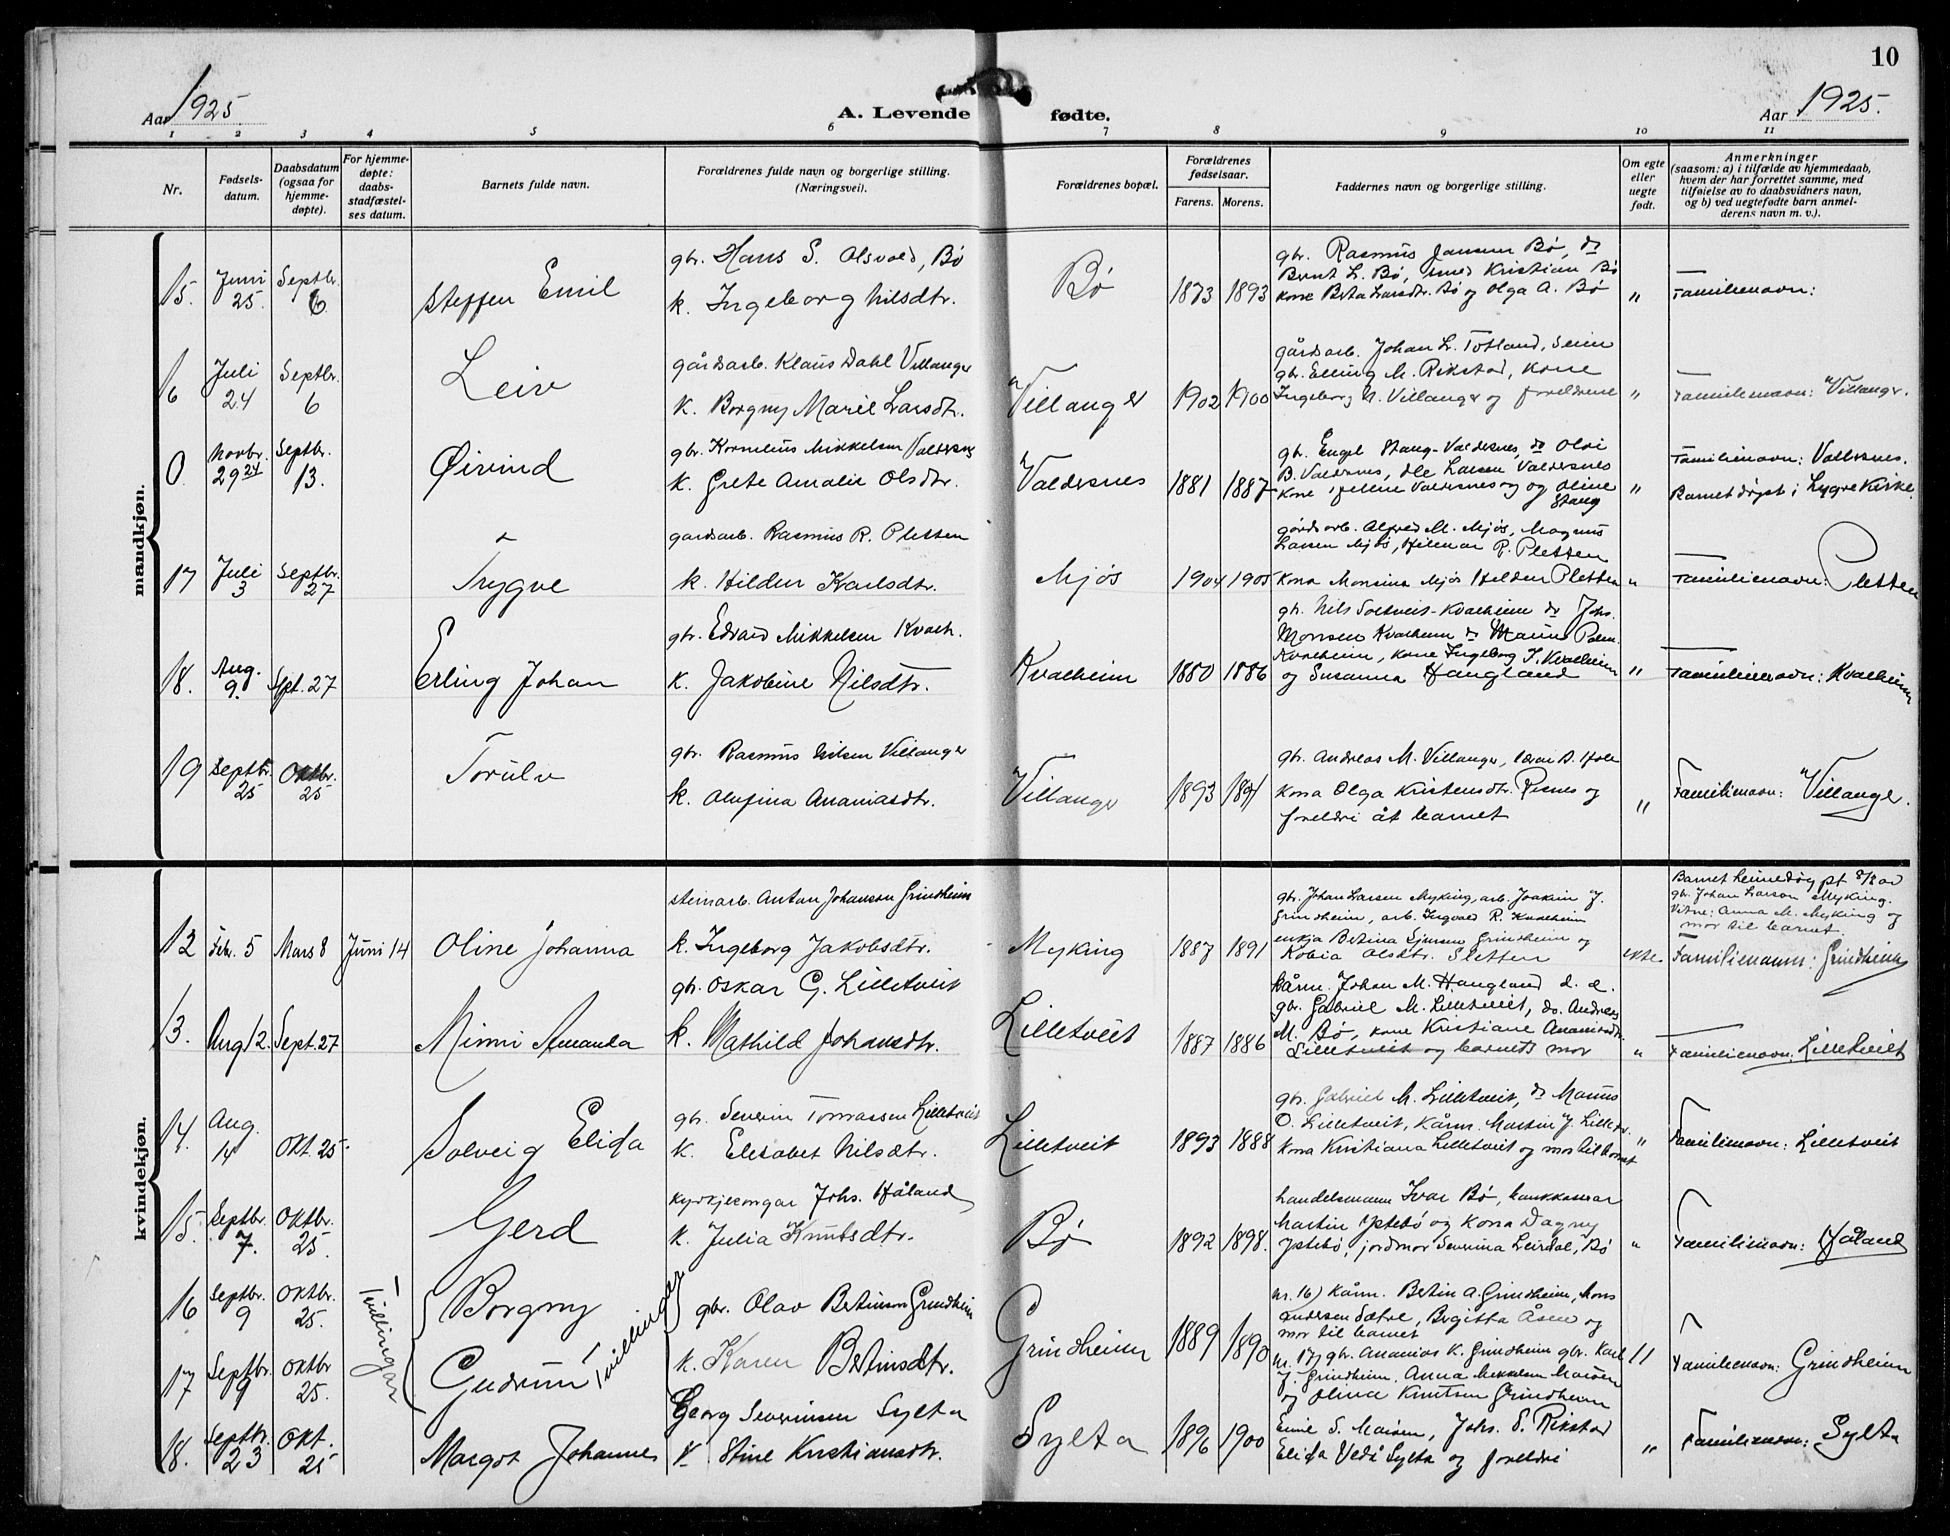 10
Aar 1925.
A. Levende fødte.
Aar 1925.
1 2 3 4 5 6 7 8 9 10 11
Nr.
Fødsels-
datum.
Daabsdatum
(ogsaa for
hjemme-
døpte).
For hjemme-
døpte:
daabs-
stadfæstel-
ses datum.
Barnets fulde navn.
Forældrenes fulde navn og borgerlige stilling.
(Næringsvei).
Forældrenes bopæl.
Forældrenes
fødselsaar.
Farens. Morens.
Faddernes navn og borgerlige stilling.
Om egte
eller
uegte
født.
Anmerkninger
(saasom: a) i tilfælde av hjemmedaab,
hvem der har forrettet samme, med
tilføielse av to daabsvidners navn,
og b) ved uegtefødte barn anmel-
derens navn m. v.).
mandkjøn.
15. Juni 25. Septbr. 6. Steffen Emil
gbr. Hans S. Olsvold, Bø
k. Ingeborg Nilsdtr.
Bø 1873 1893
gbr. Rasmus Jansen Bø, do
Bernt L. Bø, smed Kristian Bø
kone Berta Larsdtr. Bø og Olga A. Bø
" Familienavn:
16 Juli 24 Septbr. 6 Leiv
gårdsarb. Klaus Dahl Villanger
k. Borgny Marie Larsdtr.
Villanger 1902 1900
gårdsarb. Johan L. Totland, Seim
gbr. Elling M. Rikstad, kone
Ingeborg N. Villanger og foreldrene
" Familienavn: Villanger.
0 Novbr. 29 24 Septbr. 13. Øivind
gbr. Kornelius Mikkelsen Valdersnes
k. Grete Amalie Olsdtr.
Valdersnes 1881 1887
gbr. Engel Stang-Valdersnes, do Olai
B. Valdersnes, Ole Larsen Valdersnes
kone Valdersnes og Oline
Stang
" Familienavn: Valdersnes.
Barnet døypt i Lygre Kirke.
17 Juli 3 Septbr. 27 Trygve
gardsarb. Rasmus R. Pletten
k. Hildur Karlsdtr.
Mjøs 1904 1905
gårdsarb. Alfred M. Mjøs, Magnus
Larsen Mjøs, Hilmar R. Pletten
kona Monsina Mjøs Hildur Pletten
" Familienavn: Pletten
18. Aug. 9. Spt. 27 Erling Johan
gbr. Edvard Mikkelsen Kvalh.
k. Jakobine Nilsdtr.
Kvalheim 1880 1886
gbr. Nils Soltveit-Kvalheim do Johs.
Monsen Kvalheim do
Kvalheim, kone Ingeborg J. Kvalheim
og Susanna Haugland
" Familienavn: Kvalheim
19 Septbr. 25 Oktbr. 25 Torulv
gbr. Rasmus Nilsen Villanger
k. Olufina Ananiasdtr.
Villanger 1893 1891
gbr. Andreas M. Villanger, lærar
kona Olga Kristensdtr. Risnes og
foreldri åt barnet
" Familienavn: Villanger.
kvindekjøn.
12 Febr. 5 Mars 8 Juni 14 Oline Johanna
steinarb. Anton Johanson Grindheim
k. Ingeborg Jakobsdtr.
Myking 1887 1891
gbr. Johan Larsen Myking, arb. Joakim J.
Grindheim, arb. Ingvald R. Kvalheim
enkja Betina Sjursen Grindheim og
Kobia Olsdtr. Sletten
ekte.
Barnet heimedøypt 8/2 av
gbr. Johan Larson Myking.
Vitne: Anna M. Myking og
mor til barnet.
Familienavn: Grindheim
13. Aug 12. Sept. 27 Minni Amanda
gbr. Oskar G. Lilletveit
k. Mathild Johansdtr.
Lilletveit 1887 1886
kårm. Johan M. Haugland d. e.
gbr. Gabriel M. Lilletveit, do. Andreas
M. Bø, kone Kristiane Ananiasdtr.
Lilletveit og barnets mor
" Familienavn: Lilletveit
14. Aug. 14 Okt. 25 Solveig Elida
gbr. Severin Tomassen Lilletveit
k. Elisabet Nilsdtr.
Lilletveit 1893 1888
gbr. Gabriel M. Lilletveit, do Maons
O. Lilletveit, kårm. Martin J. Lilletv.
kona Kristiana Lilletveit og mor til barnet
" Familienavn: Lilletveit
15. Septbr. 7. Oktbr. 25. Gerd
kyrkjesongar Johs. Håland
k. Julia Knutsdtr.
Bø 1892 1898.
handelsmann Ivar Bø, bankkaserar
Martin Ystebø og kona Dagny
Ystebø, jordmor Severina Leirdal, Bø
" Familienavn: Håland
16 Septbr. 9 Oktbr. 25. Tvillingar Borgny Tvillingar
gbr. Olav Bertinson Grindheim
k. Karen Bertinsdtr.
Grindheim 1889 1890
nr. 16) kårm. Bertin A. Grindheim, Mons
Andersen Sætre, Birgitta Åsen og
mor til barnet
17 Septbr. 9 Oktbr 25. Gudrun
nr. 17) gbr. Ananias K. Grindheim gbr. Karl
J. Grindheim, Anna Mikkelsen Marøen
og Olina Knutsen Grindheim
" Familienavn: Grindheim
18. Septbr. 23 Okt. 25 Margot Johanne
Georg Severinsen Sylta
k Stine Kristiansdtr.
Sylta 1896 1900
Emil S. Marøen, Johs. S. Rikstad
Elida Vedå Sylta og foreldri
" Familienavn: Sylta